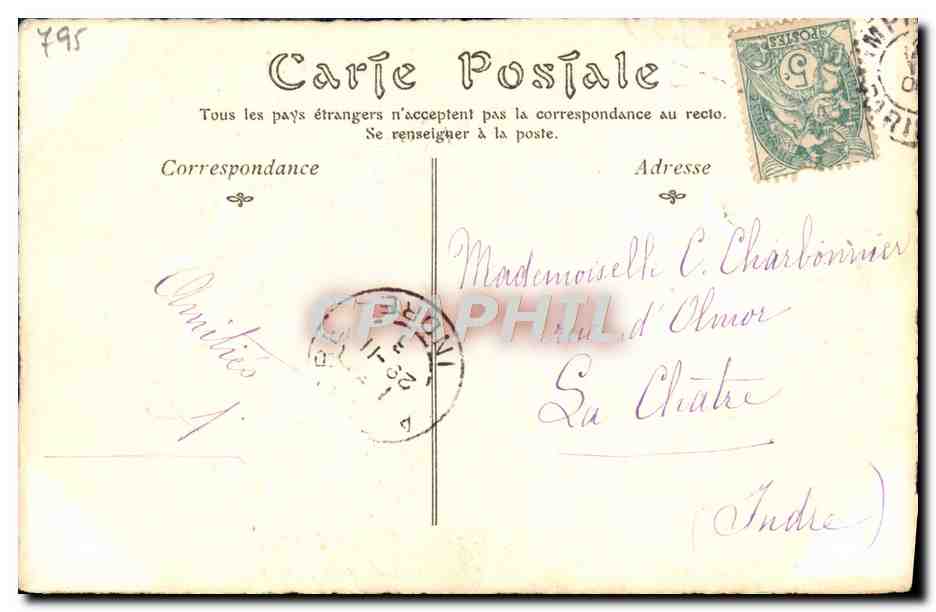 795
Carte Postale
Tous les pays étrangers n'acceptent pas la correspondance au recto.
Se renseigner à la poste.
Correspondance
Adresse
POSTES
5c
Mademoiselle C. Charbonnier
rue d'Olmor
La Châtre
(Indre)
Amitiés
INDRE
CPAPHIL